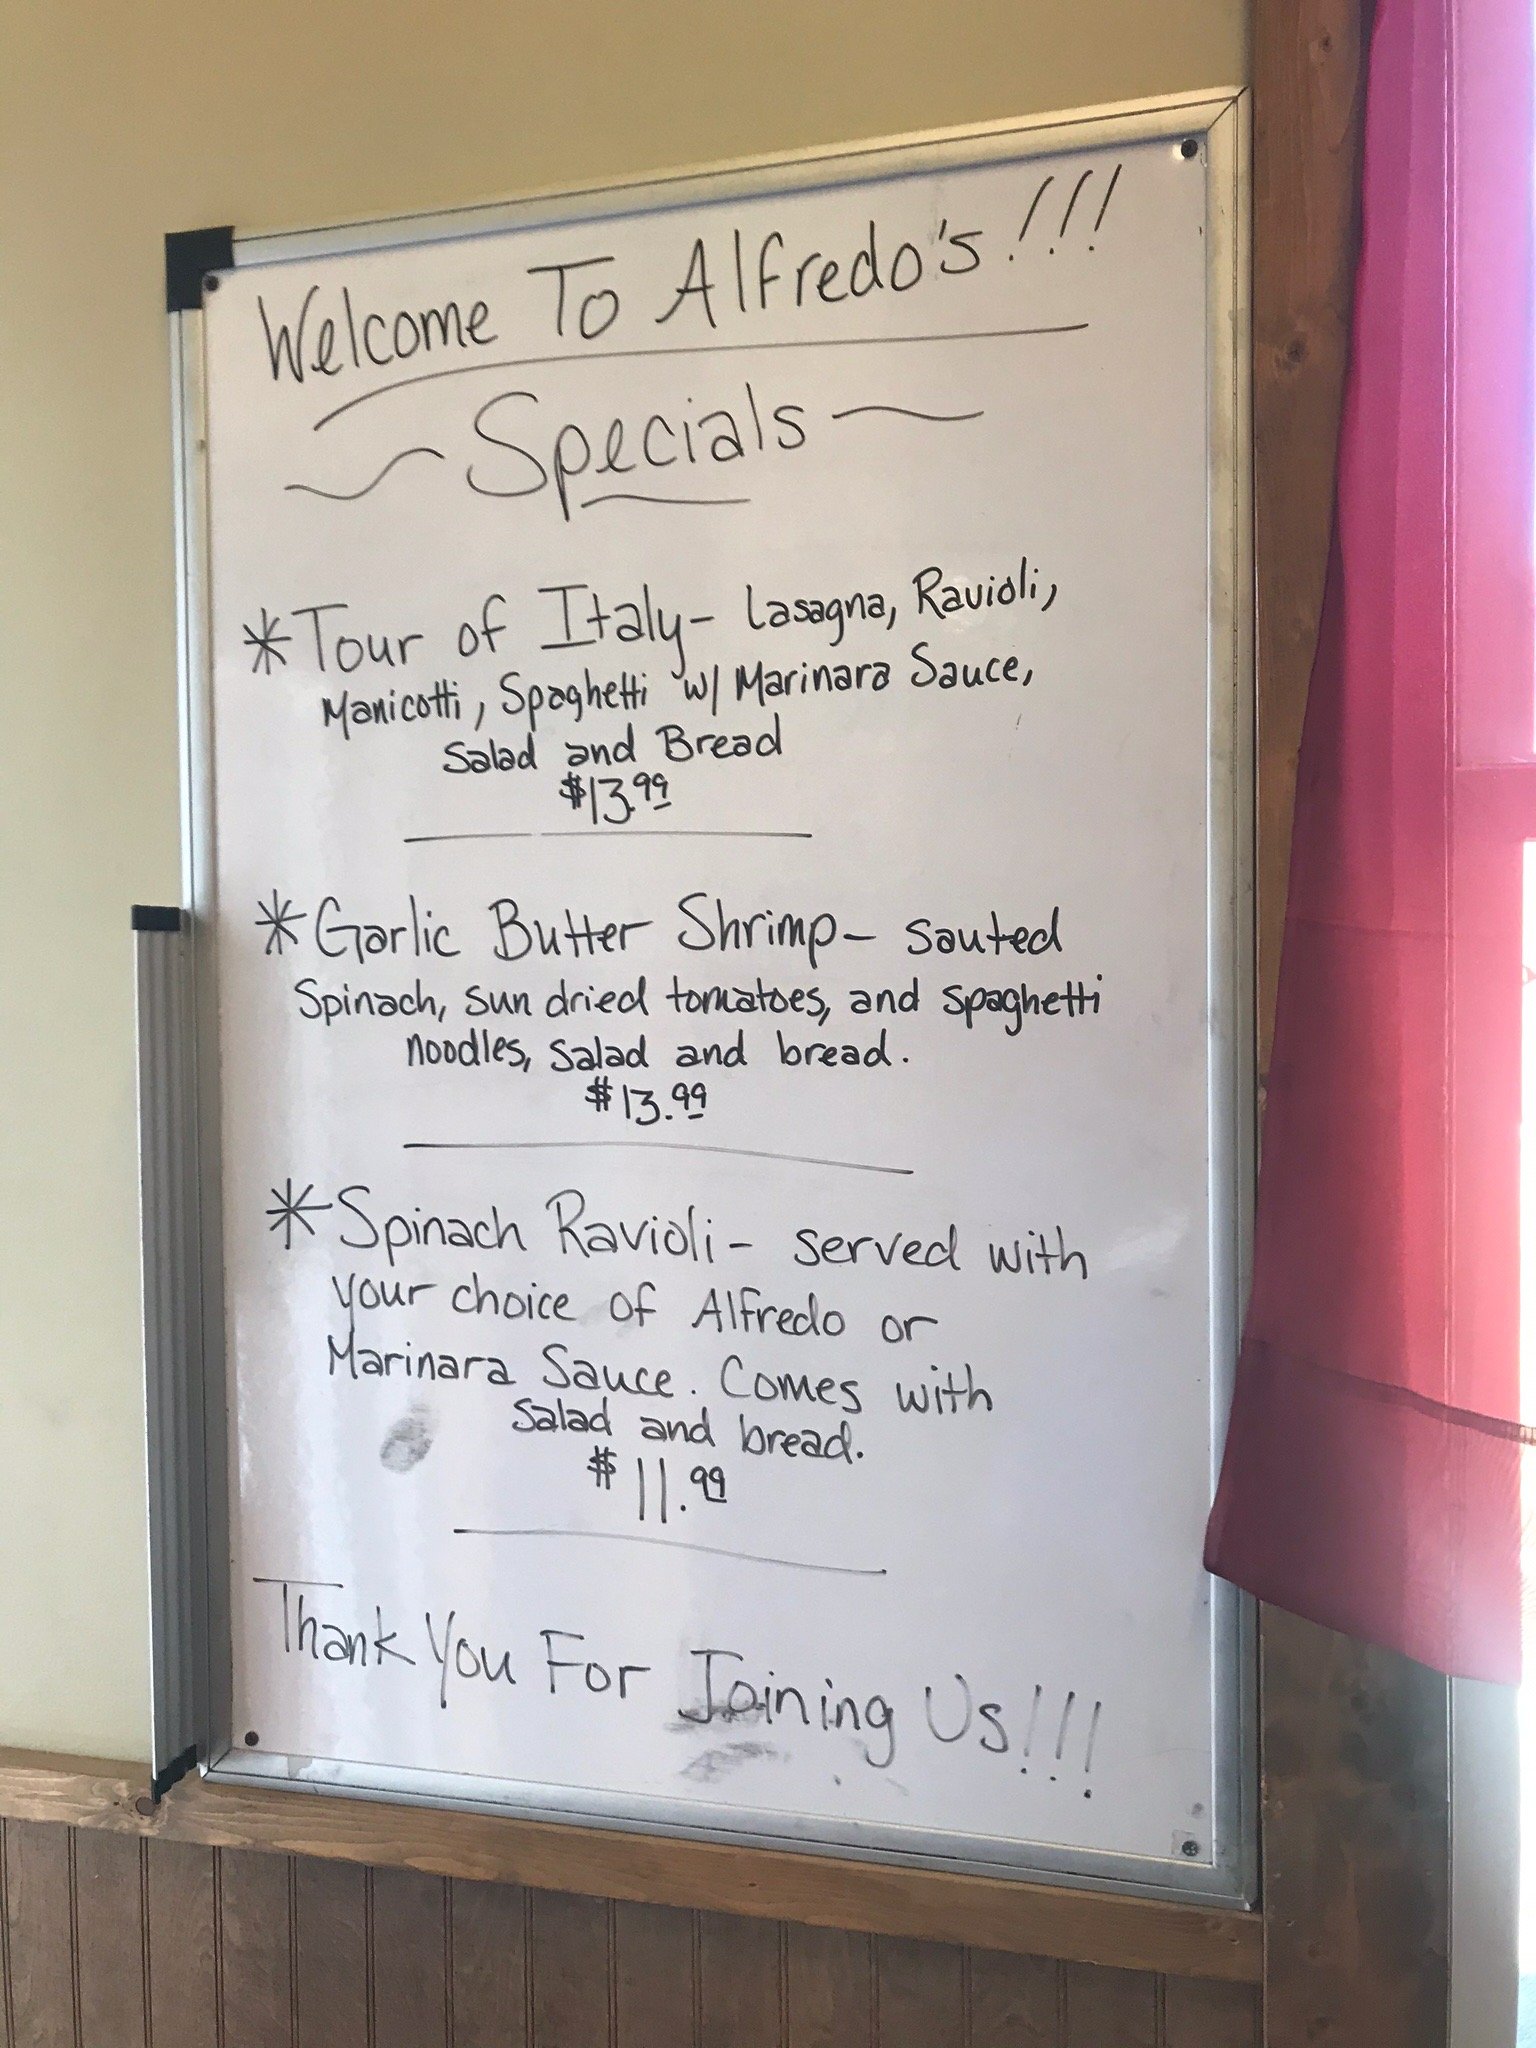 Welcome To Alfredo's!!!
Specials
*Tour of Italy- Lasagna, Ravioli,
Manicotti, Spaghetti w/ Marinara Sauce,
Salad and Bread
$13.99
*Garlic Butter Shrimp- sauted
Spinach, sun dried tomatoes, and spaghetti
noodles, salad and bread.
$13.99
*Spinach Ravioli- served with
your choice of Alfredo or
Marinara Sauce. Comes with
salad and bread.
$11.99
Thank You For Joining Us!!!